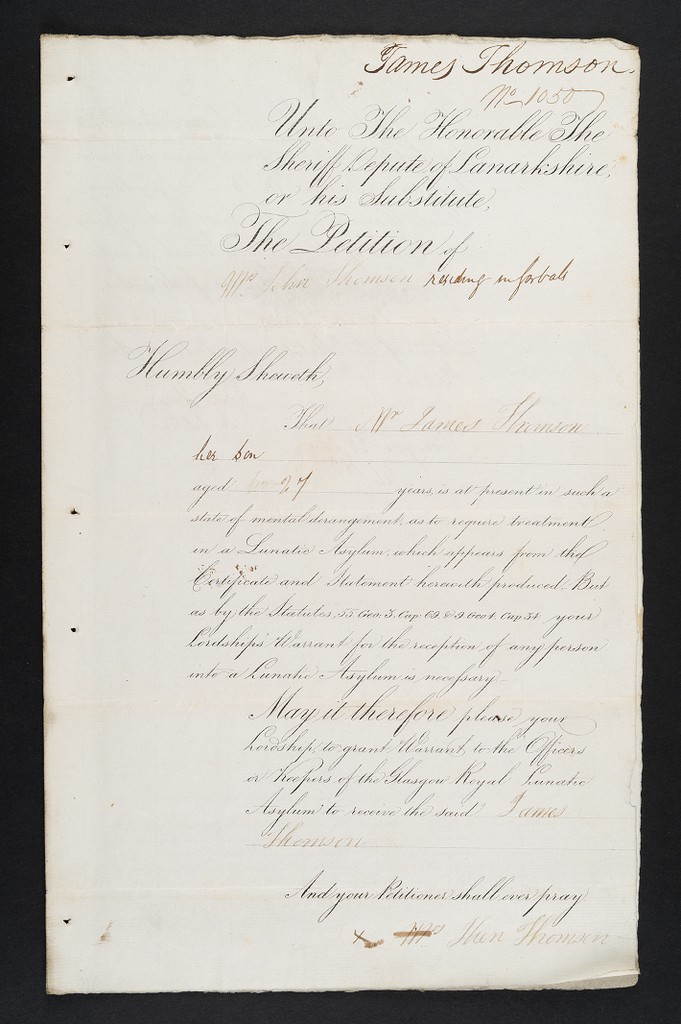 James Thomson.
No 1050
Unto The Honorable The
Sheriff Depute of Lanarkshire,
or his Substitute,
The Petition of
Mrs John Thomson residing in Gorbals
Humbly Sheweth,
That Mr James Thomson
her son
aged 27 years, is at present in such a
state of mental derangement, as to require treatment
in a Lunatic Asylum, which appears from the
Certificate and Statement herewith produced. But
as by the Statutes, 55. Geo. 3. Cap. 69. & 9. Geo 4. Cap. 34 your
Lordships Warrant for the reception of any person
into a Lunatic Asylum is necessary
May it therefore please your
Lordship, to grant Warrant, to the Officers
or Keepers of the Glasgow Royal Lunatic
Asylum to receive the said James
Thomson
And your Petitioner shall ever pray
x Mrs Thomson